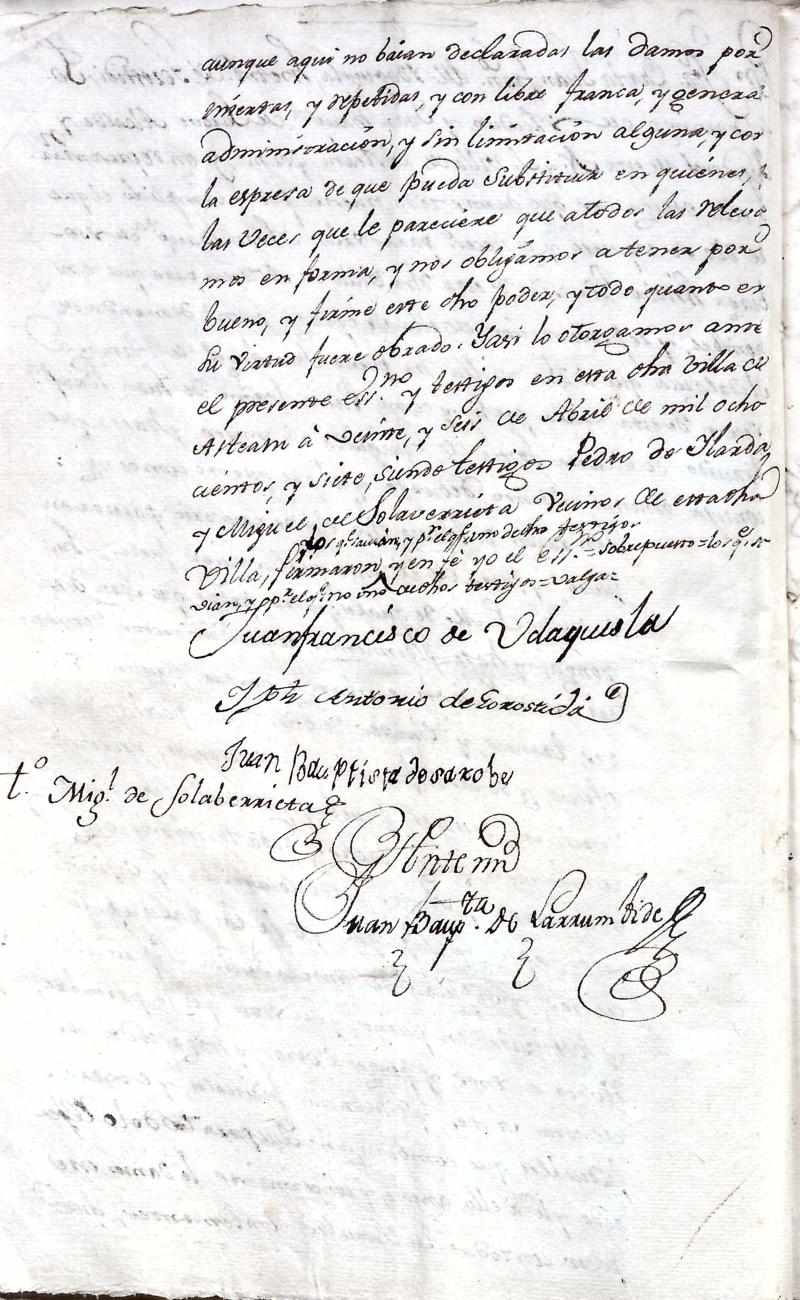 aunque aqui no báian declaradas las damos por
insertas, y repetidas, y con libre franca, y genera
administración, y sin limitación alguna, y con
la espresa de que pueda Substituir en quiénes, y
las veces que le pareciére que atodos las releva
mos en forma, y nos obligámos atener por
bueno, y firme este dho poder, y todo quanto en
su virtud fuére obrado. Yasi lo otorgamos ante
el presente ess.no y testigos en esta dha villa de
Asteasu à veinte, y seis de Abril de mil ocho
cientos, y siete, siendo testigos Pedro de Ilardia,
y Miguel de Solaverrieta Vecinos de esta dha
los q.e savian, y p.r el q.e no uno de dho testigos
Villa, firmaron, y en fé yo el ess.no = sobrepuesto = los q.e sa
vian, y p.r el q.e no uno de dhos testigos = valga =
Juan francisco de Udaquiola
Jph Antonio de Gorostidi
Juan Bauptista de sarobe
t.o Mig.l de Solaberrieta
Ante mi
Juan Baup.ta de Larrumbide